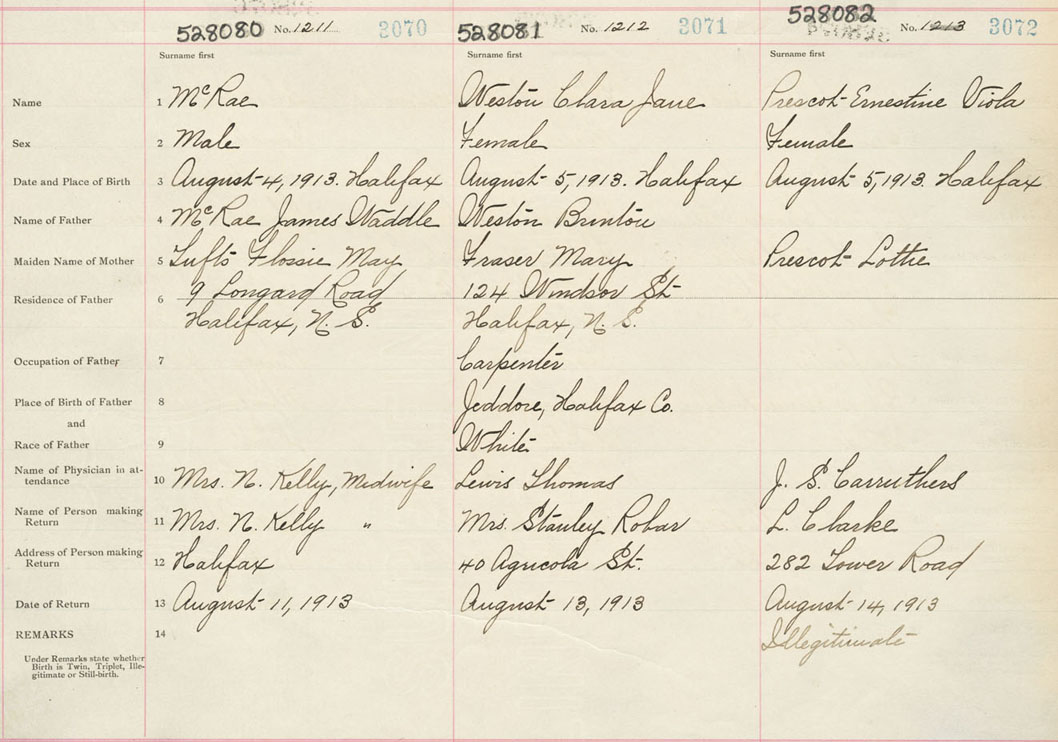 528080 No. 1211 3070 528081 No. 1212 3071 528082 No. 1213 3072
Surname first Surname first Surname first
Name 1 McRae Weston Clara Jane Prescot Ernestine Viola
Sex 2 Male Female Female
Date and Place of Birth 3 August 4, 1913. Halifax August 5, 1913. Halifax August 5, 1913. Halifax
Name of Father 4 McRae James Waddle Weston Brunton
Maiden Name of Mother 5 Tufts Flossie May Fraser Mary Prescot Lottie
Residence of Father 6 9 Longard Road 124 Windsor St
Halifax, N. S. Halifax, N. S.
Occupation of Father 7 Carpenter
Place of Birth of Father 8 Jeddore, Halifax Co.
and
Race of Father 9 White
Name of Physician in at-
tendance 10 Mrs. N. Kelly, Midwife Lewis Thomas J. S. Carruthers
Name of Person making
Return 11 Mrs. N. Kelly " Mrs. Stanley Robar L. Clarke
Address of Person making
Return 12 Halifax 40 Agricola St. 282 Tower Road
Date of Return 13 August 11, 1913 August 13, 1913 August 14, 1913
REMARKS 14 Illegitimate
Under Remarks state whether
Birth is Twin, Triplet, Ille-
gitimate or Still-birth.